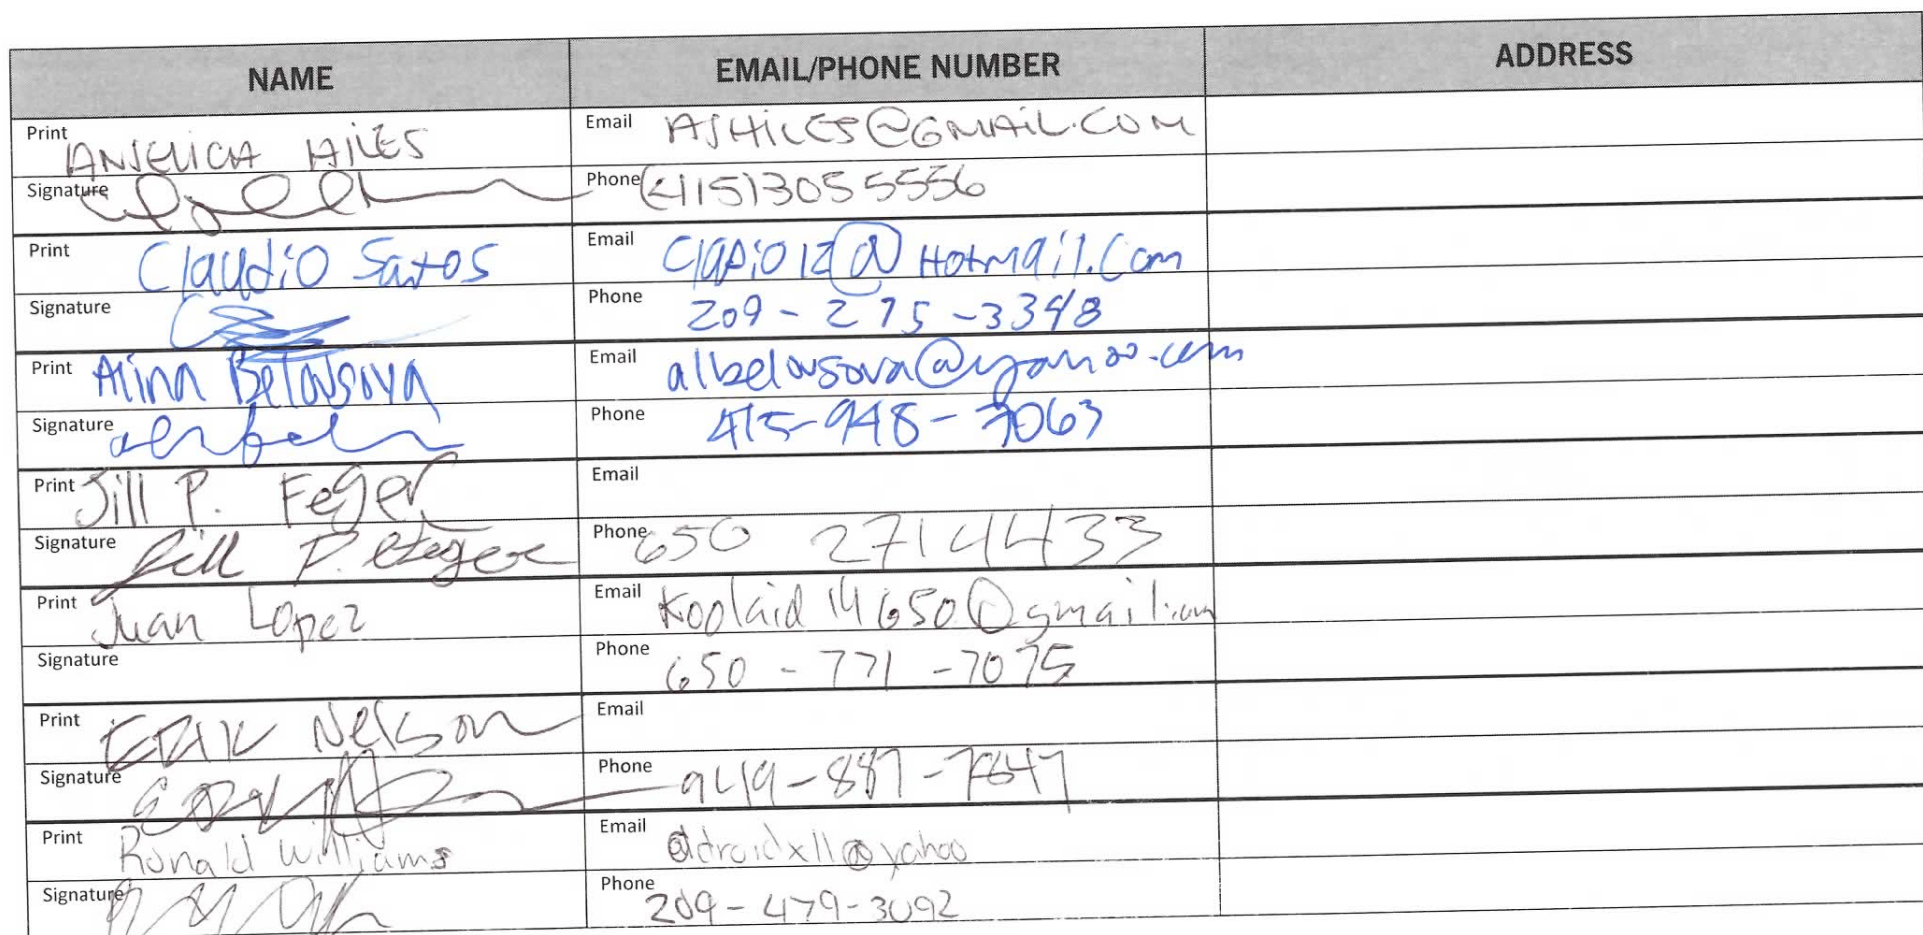 NAME EMAIL/PHONE NUMBER ADDRESS
Print ANJELICA HILES Email AJHILES@GMAIL.COM
Signature Phone (415)3055556
Print Claudio Satos Email Email ClaDiO12@HotmAil.Com
Signature Phone 209-275-3348
Print Alina Belousova Email albelousova@yahoo.com
Signature Phone 415-948-7063
Print Jill P. Feger Email
Signature Jill P. Feger Phone 650 2714433
Print Juan Lopez Email Koolaid14650@gmail.com
Signature Phone 650-771-7075
Print ERIK Nelson Email
Signature Phone 949-887-7847
Print Ronald Williams Email droidx11@yahoo
Signature Phone 209-479-3092